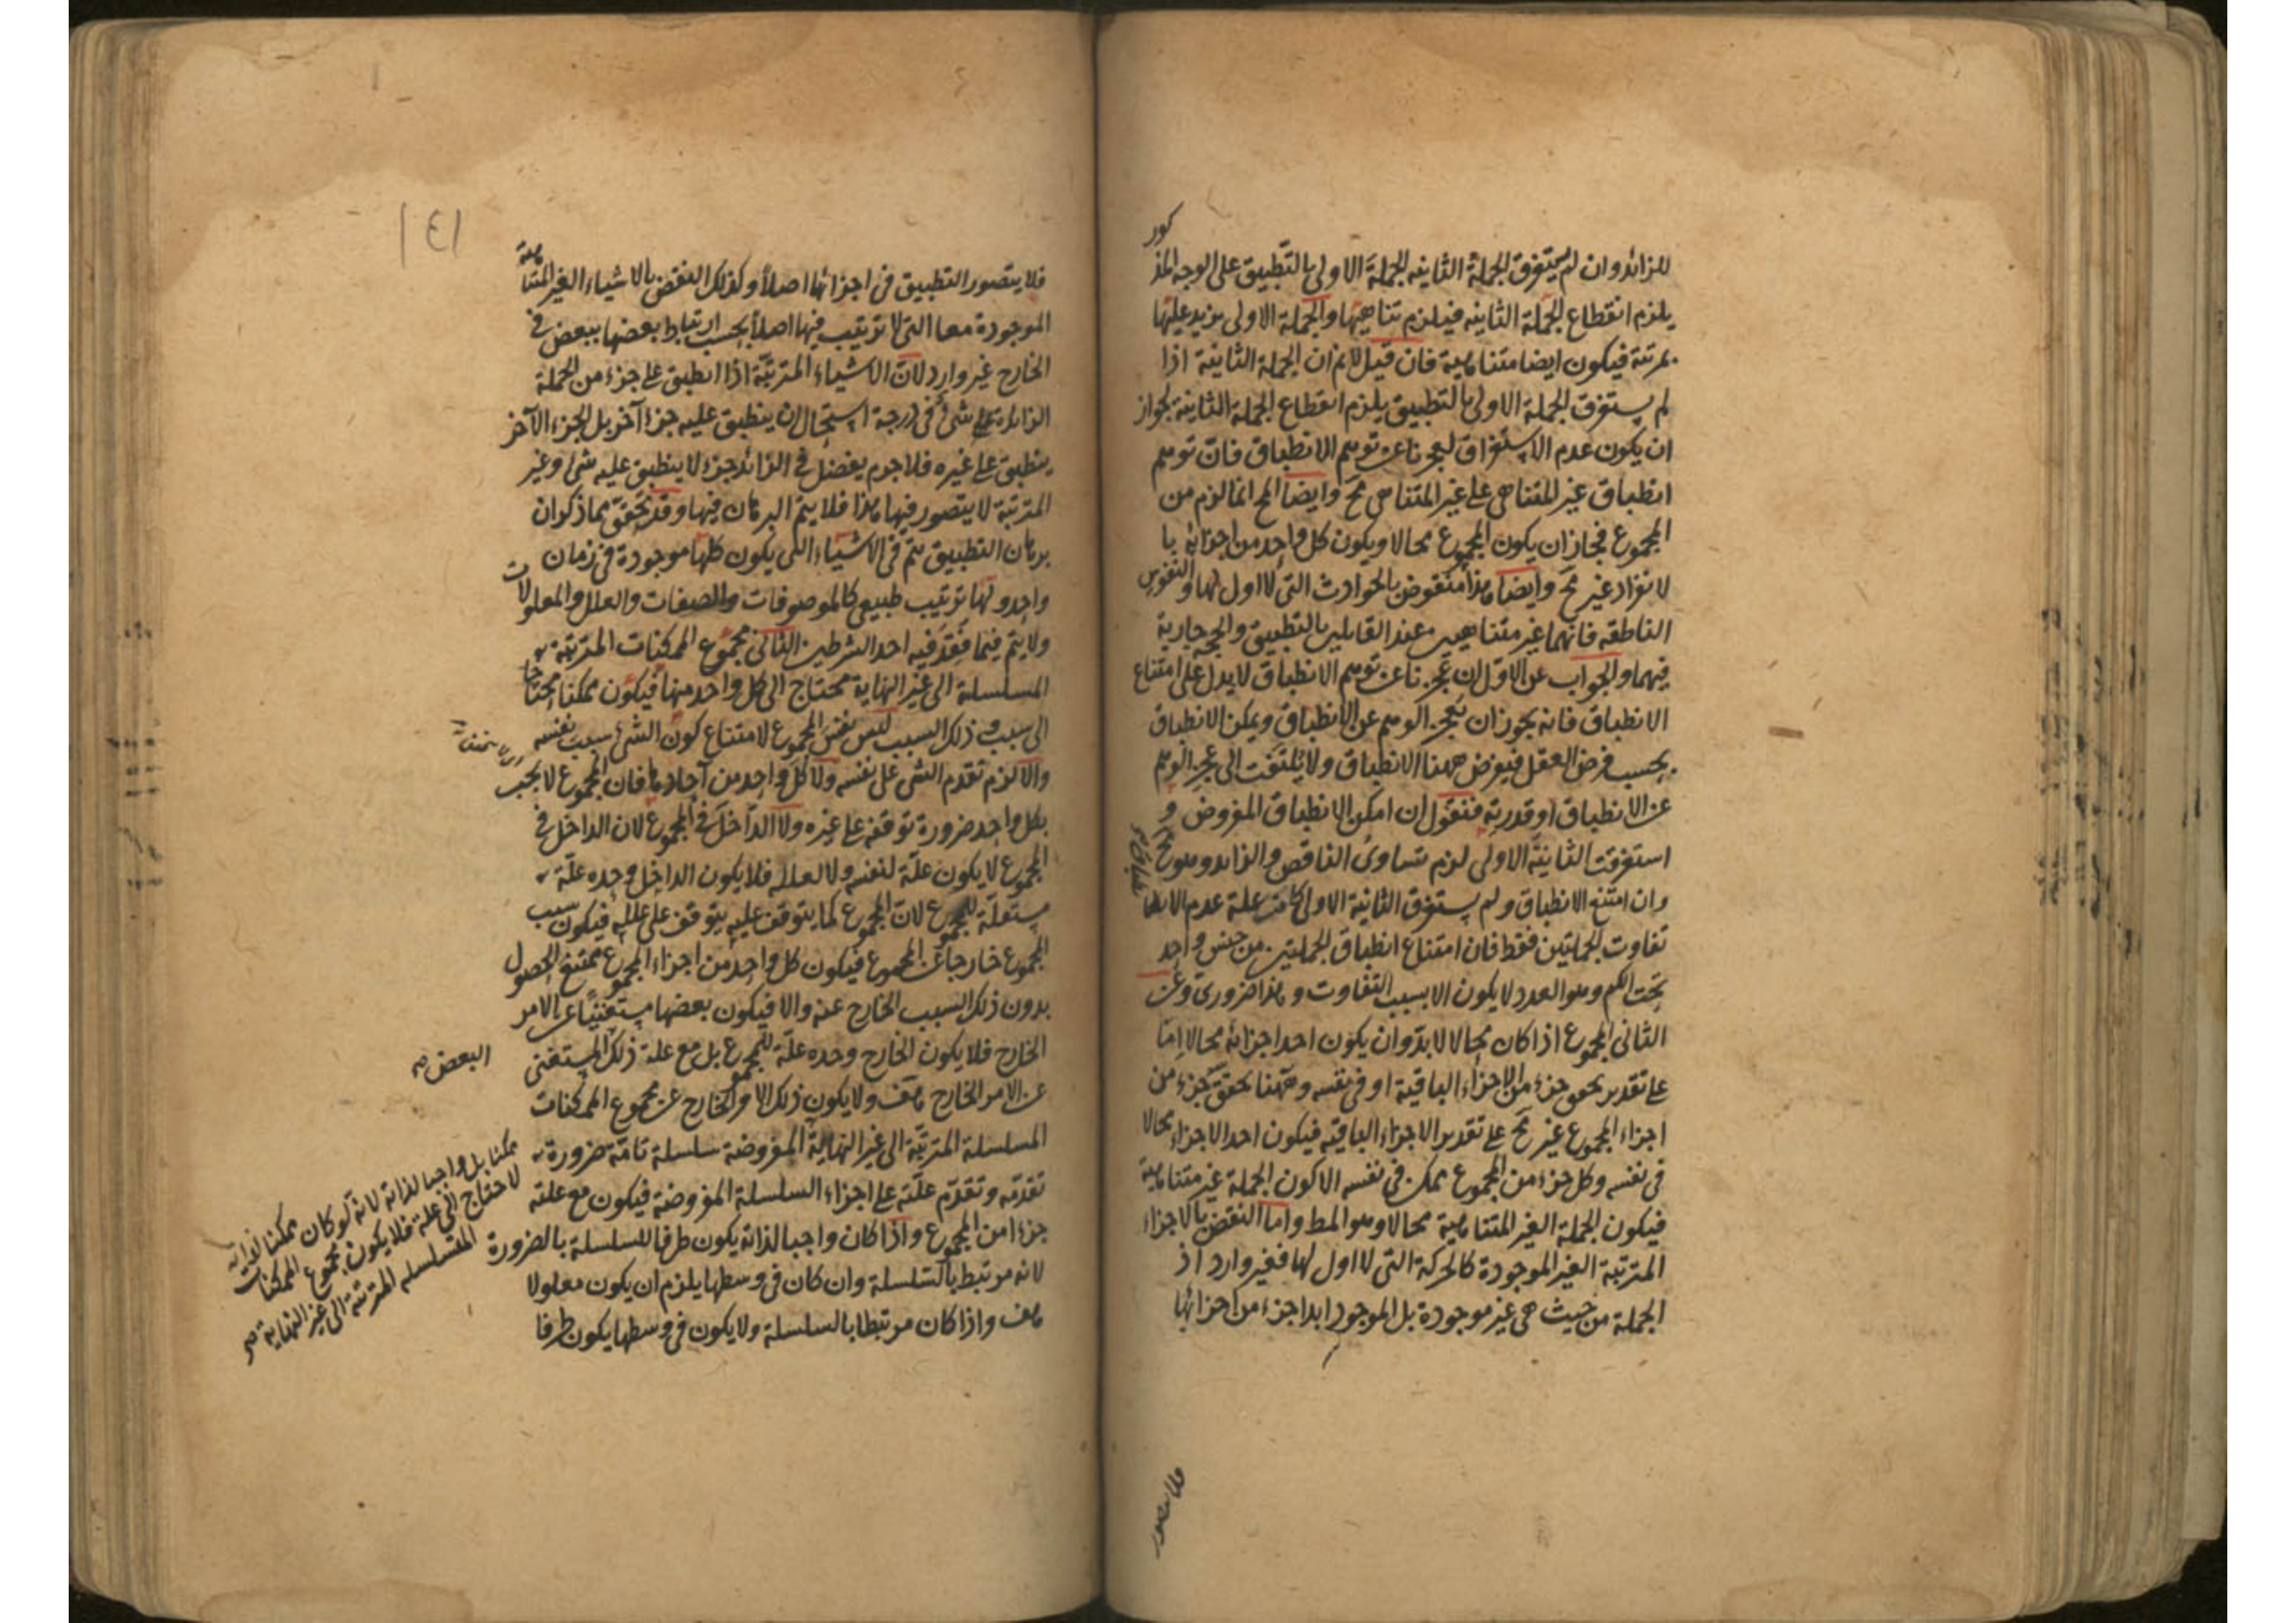 للزائد وان لم يستغرق الجملة الثانيه الجملة الاولى بالتطبيق على الوجه المذكور
يلزم انقطاع الجملة الثانيه فيلزم تناهيها والجملة الاولى يزيد عليها
بمرتبة فيكون ايضا متناهية فان قيل لانم ان الجملة الثانية اذا
لم يستغرق الجملة الاولى بالتطبيق يلزم انقطاع الجملة الثانية لجواز
ان يكون عدم الاستغراق لعجزنا عن توهم الانطباق فان توهم
انطباق غير المتناهى على غير المتناهى مح وايضا المح انما لزم من
المجموع فجاز ان يكون المجموع محالا ويكون كل واحد من اجزائه با
لانفراد غير مح وايضا هذا منقوض بالحوادث التى لا اول لها والنفوس
الناطقه فانهما غير متناهيين عند القايلين بالتطبيق والحجة جارية
فيهما والجواب عن الاول ان عجزنا عن توهم الانطباق لا يدل على امتناع
الانطباق فانه يجوز ان يعجز الوهم عن الانطباق ويمكن الانطباق
بحسب فرض العقل فيفرض ههنا الانطباق ولا يلتفت الى عجز الوهم
عن الانطباق او قدرته فنقول ان امكن الانطباق المفروض و
استغرقت الثانية الاولى لزم تساوى الناقص والزائد وهو مح
وان امتنع الانطباق ولم يستغرق الثانية الاولى كانت علة عدم الانطبا
تفاوت الجملتين فقط فان امتناع انطباق الجملتين من جنس واحد
تحت الكم وهو العدد لا يكون الا بسبب التفاوت وهذا ضرورى وعن
الثانى المجموع اذا كان محالا لا بد وان يكون احد اجزائه محالا اما
على تقدير تحقق جزء من الاجزاء الباقية او فى نفسه وههنا تحقق جزء من
اجزاء المجموع غير مح على تقدير الاجزاء الباقيه فيكون احد الاجزاء محالا
فى نفسه وكل جزء من المجموع ممكن فى نفسه الا كون الجملة غير متناهية
فيكون الجملة الغير المتناهية محالا وهو المط واما النقض بالاجزاء
المترتبة الغير الموجودة كالحركة التى لا اول لها فغير وارد اذ
الجملة من حيث هى غير موجودة بل الموجود ابدا جزء من اجزائها
فلا يتصور
١٤١
فلا يتصور التطبيق فى اجزائها اصلا وكذلك النقض بالاشياء الغير المتناهية
الموجودة معا التى لا ترتيب فيها اصلا بحسب ارتباط بعضها ببعض فى
الخارج غير وارد لان الاشياء المترتبة اذا انطبق على جزء من الجملة
الزائدة على شئ فى درجة استحال ان ينطبق عليه جزء آخر بل الجزء الآخر
ينطبق على غيره فلا جرم يفضل فى الزائد جزء لا ينطبق عليه شئ وغير
المترتبة لا يتصور فيها هذا فلا يتم البرهان فيها وقد تحقق مما ذكر ان
برهان التطبيق يتم فى الاشياء التى يكون كلها موجودة فى زمان
واحد ولها ترتيب طبيعى كالموصوفات والصفات والعلل والمعلولات
ولا يتم فيما فقد فيه احد الشرطين الثانى مجموع الممكنات المترتبة
المسلسلة الى غير النهاية محتاج الى كل واحد منها فيكون ممكنا محتاجا
الى سبب وذلك السبب ليس نفس المجموع لامتناع كون الشئ سبب نفسه
والا لزم تقدم الشى على نفسه ولا كل واحد من آحادها فان المجموع لا يجب
بكل واحد ضرورة توقفه على غيره ولا الداخل فى المجموع لان الداخل فى
المجموع لا يكون علة لنفسه ولا لعلله فلا يكون الداخل وحده علة
مستقلة للمجموع لان المجموع كما يتوقف عليه يتوقف على علله فيكون سبب
المجموع خارجا عن المجموع فيكون كل واحد من اجزاء المجموع ممتنع الحصول
بدون ذلك السبب الخارج عنه والا فيكون بعضها مستغنيا عن الامر
الخارج فلا يكون الخارج وحده علة للمجموع بل مع علة ذلك المستغنى
البعض صح
عن الامر الخارج هف ولا يكون ذلك الامر الخارج عن مجموع الممكنات
المسلسلة المترتبة الى غير النهاية المفروضة سلسلة تامة ضرورة
تقدمه وتقدم علته على اجزاء السلسلة المفروضة فيكون مع علته
جزءا من المجموع واذا كان واجبا لذاته يكون طرفا للسلسلة بالضرورة
لانه مرتبط بالسلسلة وان كان فى وسطها يلزم ان يكون معلولا
هف واذا كان مرتبطا بالسلسلة ولا يكون فى وسطها يكون طرفا
ممكنا بل واجبا لذاته لانه لو كان ممكنا لذاته
لاحتاج الى علة فلا يكون مجموع الممكنات
المتسلسلة المترتبة الى غير النهاية صح